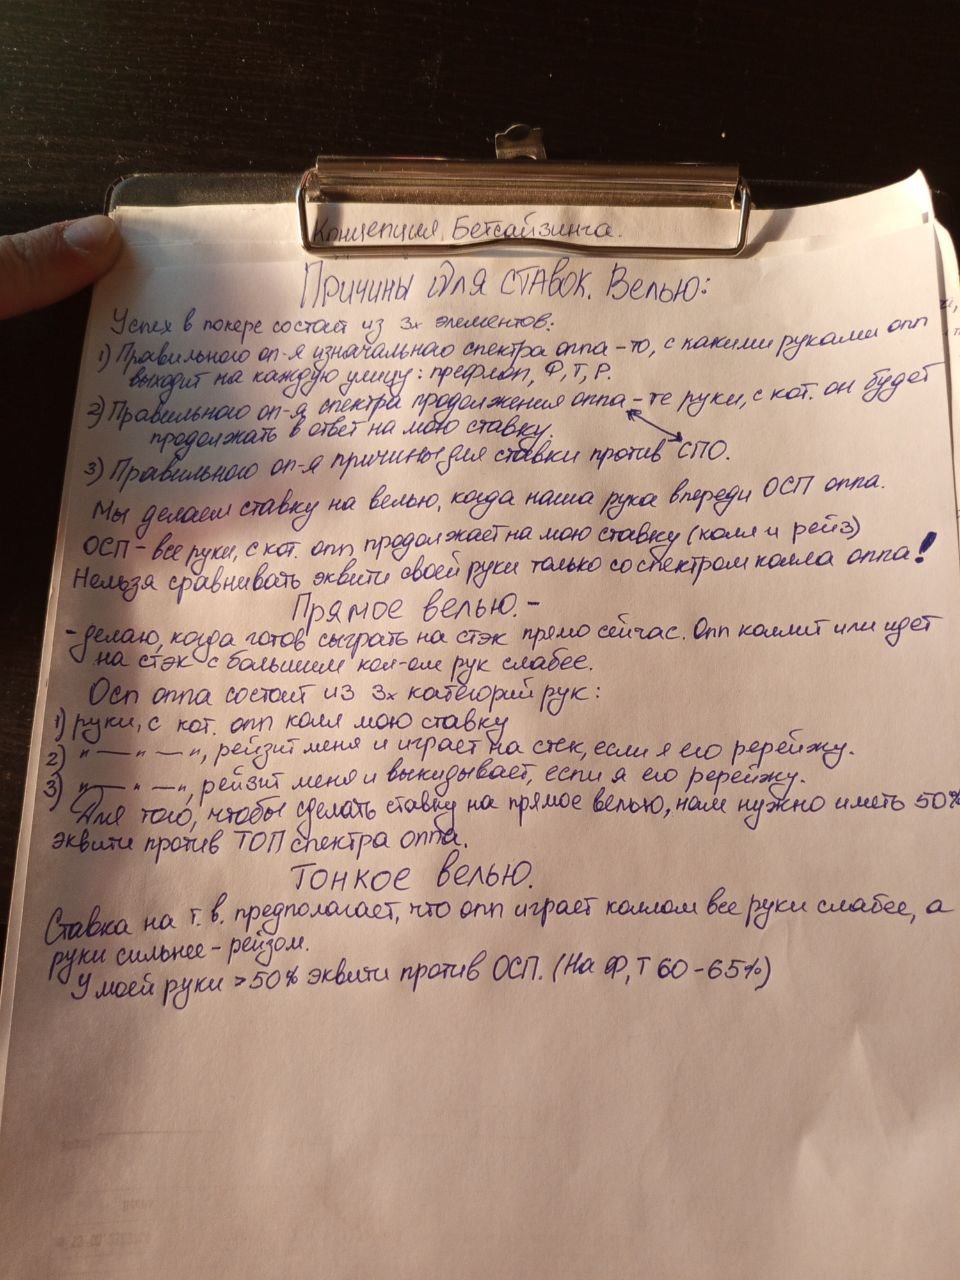 Концепция Бетсайзинга.
Причины для ставок. Велью:
Успех в покере состоит из 3х элементов:
1) Правильного оп-я изначальнаo спектра оппа – то, с какими руками опп
выходит на каждую улицу: префлоп, Ф, Т, Р.
2) Правильного оп-я спектра продолжения оппа – те руки, с кот. он будет
продолжать в ответ на мою ставку.
3) Правильного оп-я причины для ставки против СПО.
Мы делаем ставку на велью, когда наша рука впереди ОСП оппа.
ОСП – все руки, с кот. опп продолжает на мою ставку (колл и рейз)
Нельзя сравнивать эквити своей руки только со спектром колла оппа!
Прямое велью. –
– делаю, когда готов сыграть на стэк прямо сейчас. Опп коллит или идет
на стэк с большим кол-ом рук слабее.
Осп оппа состоит из 3х категорий рук:
1) руки, с кот. опп колл мою ставку
2) " — " — ", рейзит меня и играет на стек, если я его ререйжу.
3) " — " — ", рейзит меня и выкидывает, если я его ререйжу.
Для того, чтобы сделать ставку на прямое велью, нам нужно иметь 50%
эквити против ТОП спектра оппа.
Тонкое велью.
Ставка на т.в. предполагает, что опп играет коллом все руки слабее, а
руки сильнее – рейзом.
У моей руки >50% эквити против ОСП. (На Ф, Т 60-65%)